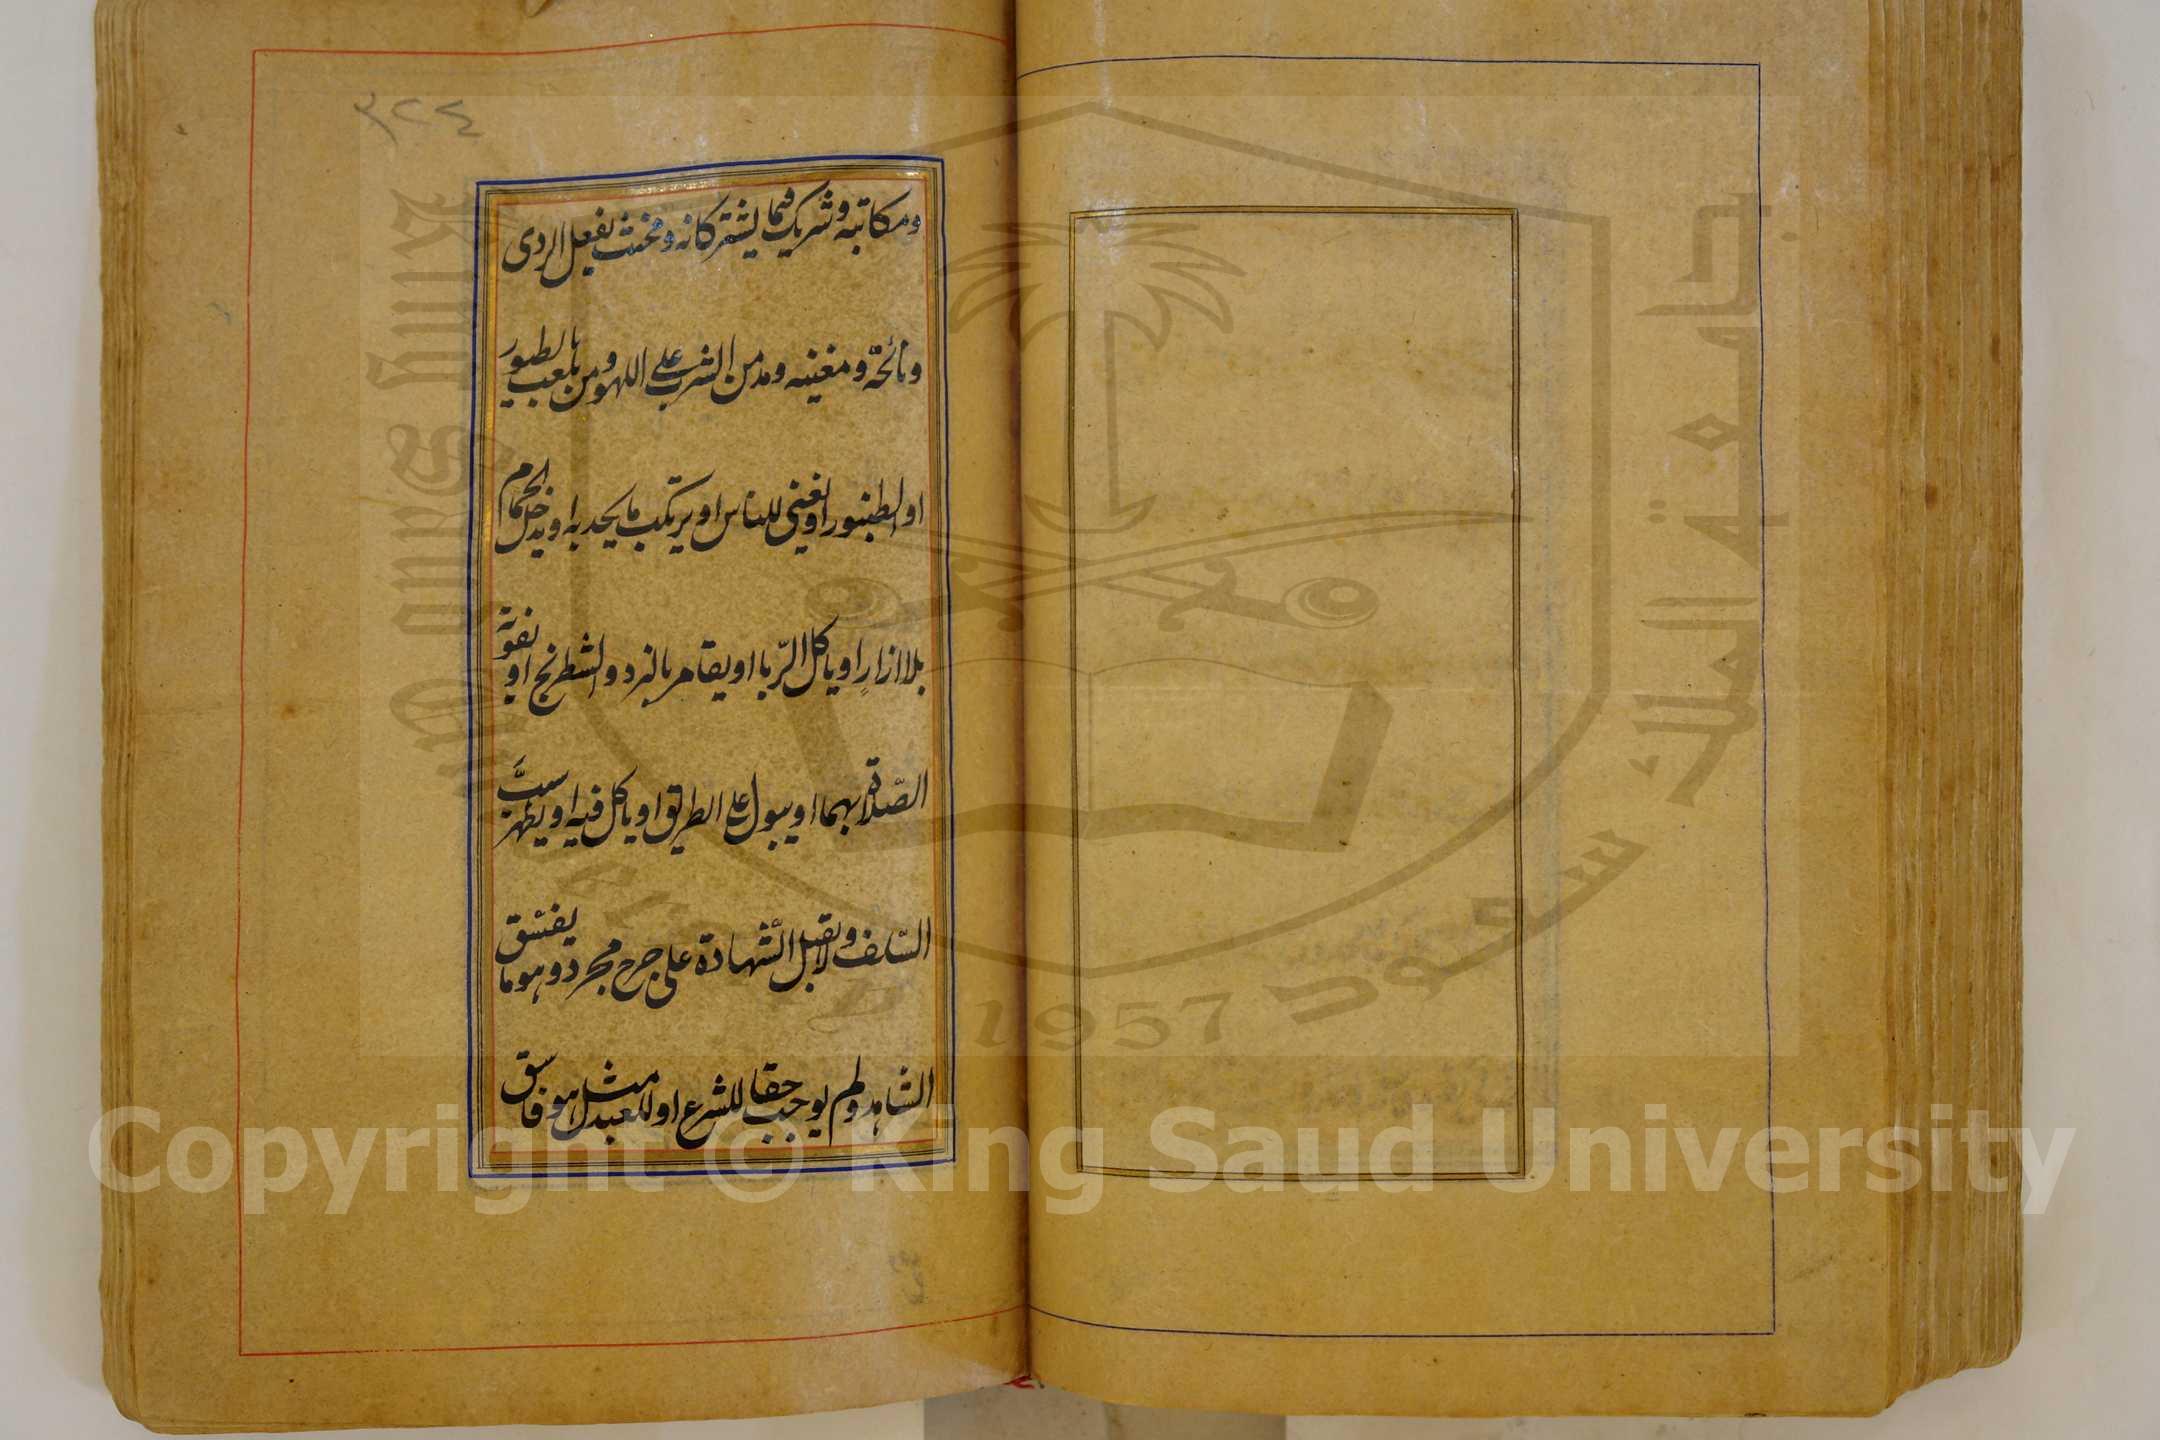 ٣٢٤
ومكاتبه وشريك فيما يشتركانه ومخنث يفعل الردى
ونائحة ومغنيه ومدمن الشرب على اللهو ومن يلعب بالطيور
او الطنبور او يغنى للناس او يرتكب ما يحد به او يدخل الحمام
بلا ازارٍ او ياكل الرّبا او يقامر بالنرد والشطرنج او تفوته
الصّلاة بهما او يبول على الطريق او ياكل فيه او يظهر سبَّ
السّلف ولا تقبل الشّهادة على جرح مجرد وهو ما يفسّق
الشاهد ولم يوجب حقا للشرع او للعبد مثل هو فاسق
King Saud University
جامعة الملك سعود
1957
Copyright © King Saud University